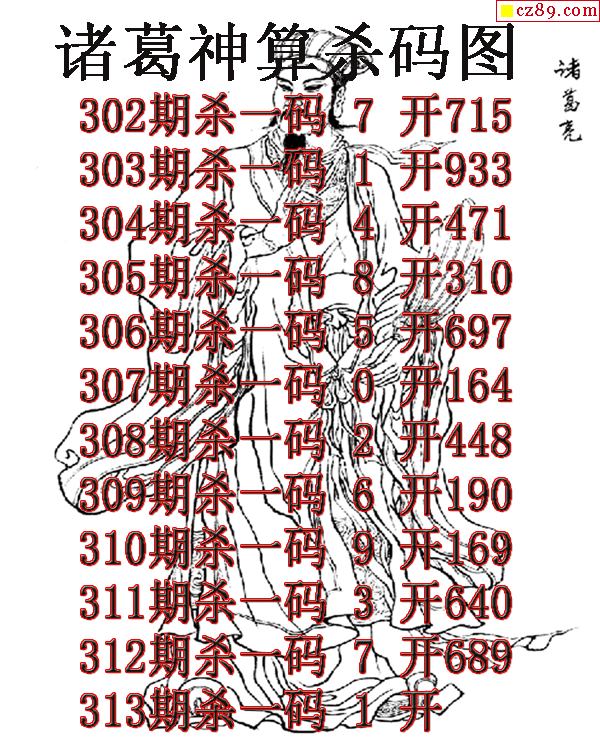 cz89.com
诸葛神算杀码图
诸葛亮
302期杀一码 7 开715
303期杀一码 1 开933
304期杀一码 4 开471
305期杀一码 8 开310
306期杀一码 5 开697
307期杀一码 0 开164
308期杀一码 2 开448
309期杀一码 6 开190
310期杀一码 9 开169
311期杀一码 3 开640
312期杀一码 7 开689
313期杀一码 1 开